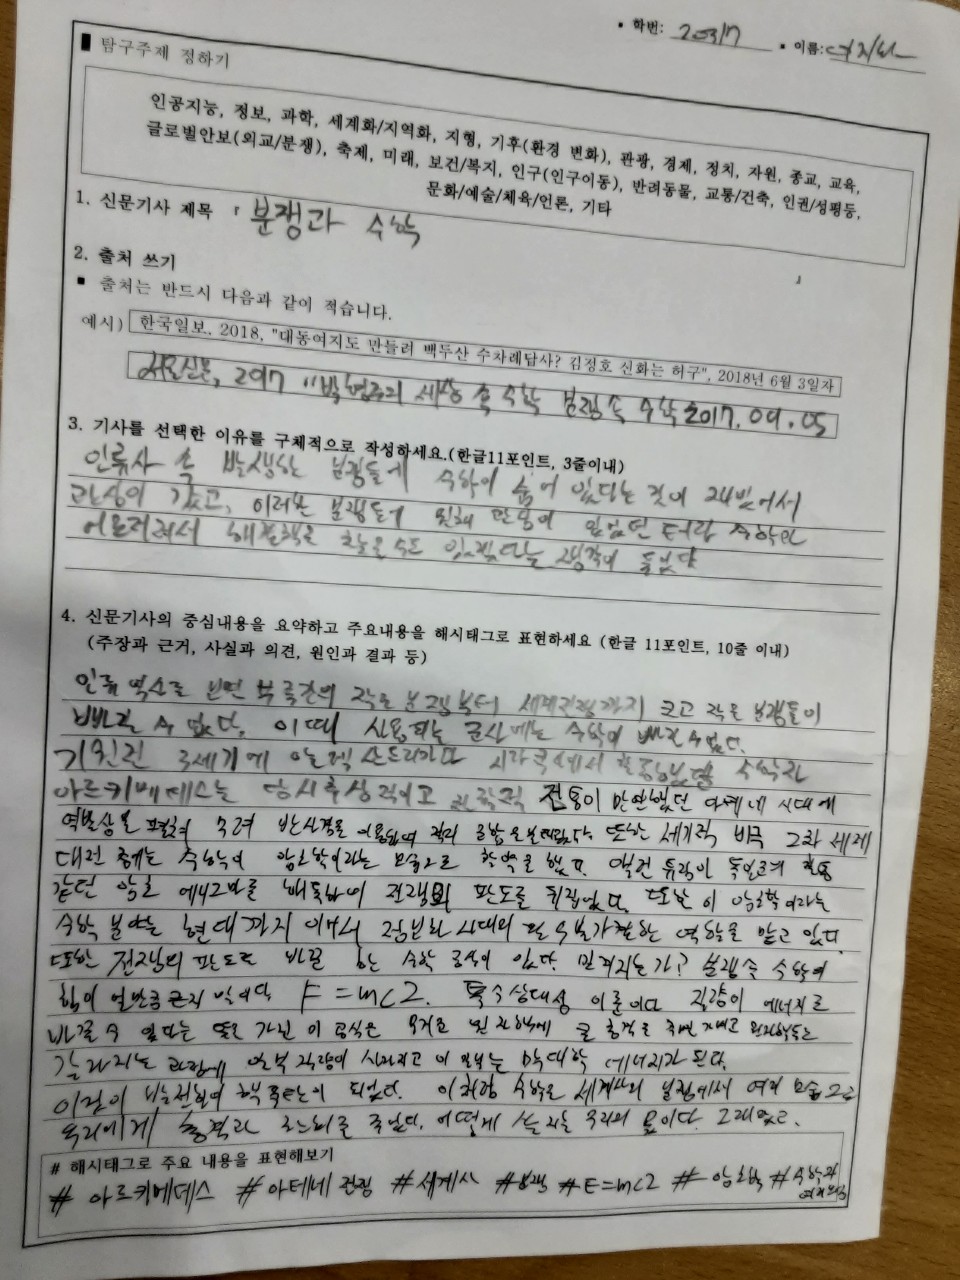 • 학번: 20317 • 이름:
▌탐구주제 정하기
인공지능, 정보, 과학, 세계화/지역화, 지형, 기후(환경 변화), 관광, 경제, 정치, 자원, 종교, 교육,
글로벌안보(외교/분쟁), 축제, 미래, 보건/복지, 인구(인구이동), 반려동물, 교통/건축, 인권/성평등,
문화/예술/체육/언론, 기타
1. 신문기사 제목 『 분쟁과 수학
』
2. 출처 쓰기
▪ 출처는 반드시 다음과 같이 적습니다.
예시) 한국일보, 2018, "대동여지도 만들려 백두산 수차례답사? 김정호 신화는 허구", 2018년 6월 3일자
서울신문, 2017 "박형주의 세상 속 수학 분쟁 속 수학 2017. 09. 05
3. 기사를 선택한 이유를 구체적으로 작성하세요.(한글11포인트, 3줄이내)
인류사 속 발생한 분쟁들에 수학이 숨어 있다는 것이 재밌어서
관심이 갔고, 이러한 분쟁들에 수학만
해결책을 찾을 수도 있겠다는 생각이 들었다
4. 신문기사의 중심내용을 요약하고 주요내용을 해시태그로 표현하세요 (한글 11포인트, 10줄 이내)
(주장과 근거, 사실과 의견, 원인과 결과 등)
인류 역사를 보면 부족간의 작은 분쟁부터 세계전쟁까지 크고 작은 분쟁들이
빠질 수 없다. 이때 사용되는 군사에는 수학이 빠질 수 없다.
기원전 3세기에 알렉산드리아와 시라쿠사에서 활동했던 수학자
아르키메데스는 당시 추상적이고 관학적 전통이 만연했던 아테네 시대에
역발상을 수려 반사경을 이용하여 적의 또한 세기적 비극 2차 세계
대전 중에는 수학이 암호학이라는 모습으로 활약을 했다. 앨런 튜링이 독일군의
같던 암호 에니그마를 해독하여 전쟁의 판도를 뒤집었다. 또한 이 암호학이라는
수학 분야는 현대까지 이어져 정보화 시대의 필수불가결한 역할을 맡고 있다.
또한 전쟁의 판도를 바꾼 한 수학 공식이 있다. 믿겨지는가? 분쟁 속 수학의
힘이 얼만큼 큰지 말이다 F=mc2. 특수상대성 이론이다 질량이 에너지로
바뀔 수 있다는 뜻을 가진 이 공식은 큰 충격을 주었
갈라지는 과정에 일부 질량이 사라지고 이 일부는 막대한 에너지가 된다.
이것이 발전하여 핵폭탄이 되었다. 이처럼 수학은 세계사의 분쟁에서 여러 모습으로
우리에게 충격과 를 주었다. 어떻게 쓸 지는 우리의 몫이다.
# 해시태그로 주요 내용을 표현해보기
# 아르키메데스 #아테네 전쟁 #세계사 #분쟁 #E=mc2 # 암호학 #수학과